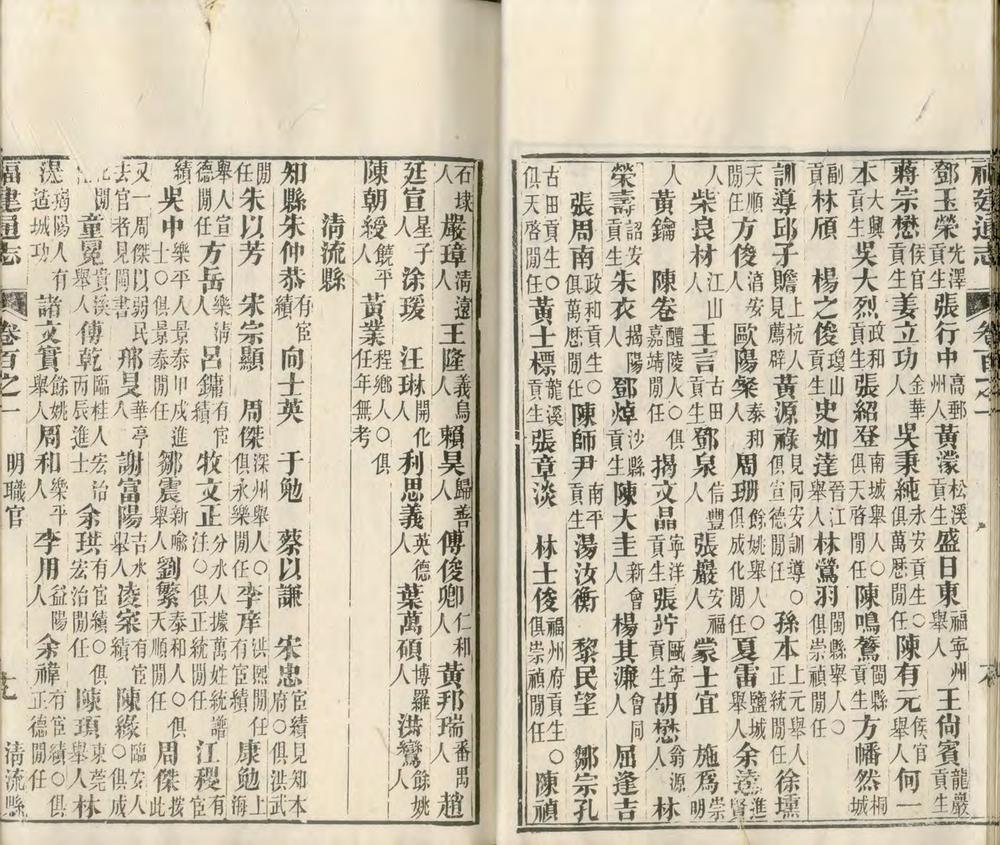 福建通志 卷百之一
鄧玉榮光澤貢生張行中高郵州人黃濛松溪貢生盛日東福寧州舉人王尚賓龍巖貢生
蔣宗懋侯官貢生姜立功金華人吳秉純永安貢生○俱萬厯閒任陳有元侯官舉人何一
本大興貢生吳大烈政和貢生張紹登南城舉人○俱天啓閒任陳鳴鶱閩縣貢生方幡然桐城
副貢林頎 楊之俊瓊山貢生史如達晉江舉人林鶯羽閩縣舉人○俱崇禎閒任
訓導邱子贍上杭人見薦辟黃源祿見同安訓導○俱宣德閒任孫本上元舉人正統閒任徐壎
天順閒任方俊淯安人歐陽粲泰和人周珊餘姚舉人○俱成化閒任夏雷鹽城人余遠進賢
人柴良材江山人王言古田人鄧泉信豐人張嚴安福人蒙士宜 施爲崇明
人黃鑰 陳卷醴陵人○俱嘉靖閒任揚文晶寧洋貢生張竚甌寧貢生胡懋翁源人林
榮壽詔安貢生朱衣揭陽人鄧焯沙縣貢生陳大圭新會人楊其濂會同人屈逢吉
張周南政和貢生○俱萬厯閒任陳師尹南平貢生湯汝衡 黎民望 鄒宗孔
古田貢生○俱天啓閒任黃士標龍溪貢生張章淡 林士俊福州府貢生○俱崇禎閒任陳禎
石埭人嚴璋清遠人王隆義烏人賴昊歸善人傅俊卿仁和人黃邦瑞番禺人趙
廷宣星子人涂瑗 汪琳開化人利思義英德人葉萬碩博羅人洪鸞餘姚人
陳朝綬饒平人黃業程鄉人○俱任年無考
清流縣
知縣朱仲恭有宦績向士英 于勉 蔡以謙 宋忠宦績見知本府○俱洪武
閒任朱以芳 宋宗顯 周傑深州舉人○俱永樂閒任李庠洪熙閒任有宦績康勉上海
舉人宣德閒任方岳樂清人呂鏞有宦績牧文正分水人據萬姓統譜注○俱正統閒任江稷有宦
績吳中樂平人景泰甲戌進士○俱景泰閒任鄒震新喩舉人劉繁泰和人○俱天順閒任周傑按此
又一周傑以弱民去官者見閩書邢昊華亭人謝富陽吉水舉人凌寀有宦績陳緣臨安人○俱成
化閒任童冕貴溪舉人傅乾臨桂人宏治丙辰進士余珙有宦績○俱宏治閒任陳頊東莞舉人林
湜瑀陽人有造城功諸文實餘姚舉人周和樂平人李用益陽人余褘有宦績○俱正德閒任
福建通志 卷百之一 明職官 芜 清流縣